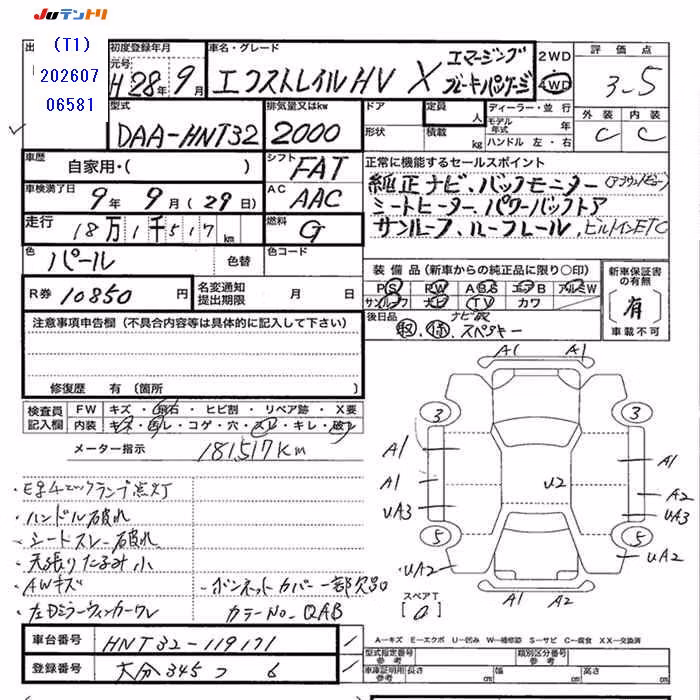 JUテントリ
(T1)
202607
06581
初度登録年月
元号
H 28年 9月
車名・グレード
エクストレイルHV X エマージングブレーキパッケージ
2WD
4WD
評価点
3-5
外装 内装
C C
型式
DAA-HNT32
排気量又はkw
2000
ドア
形状
定員
人
積載
kg
ディーラー・並行
モデル年式
年
ハンドル 左・右
車歴
自家用・( )
シフト
FAT
車検満了日
9年 9月(29日)
AC
AAC
走行
18万1千517km
燃料
G
色
パール
色替
色コード
R券 10850 円
名変通知
提出期限
月 日
正常に機能するセールスポイント
純正ナビ、バックモニター(アラウンドビュー)
シートヒーター パワーバックドア
サンルーフ、ルーフレール、ビルトインETC
装備品(新車からの純正品に限り〇印)
PS PW ABS エアB アルミW
サンルーフ ナビ TV カワ
後日品
ナビ取
取、保、スペアキー
新車保証書
の有無
有
車載不可
注意事項申告欄(不具合内容等は具体的に記入して下さい)
修復歴 有(箇所
検査員
記入欄
FW キズ・飛石・ヒビ割・リペア跡・X要
内装 キズ・汚レ・コゲ・穴・スレ・キレ・破レ
メーター指示 181,517Km
・E/gチェックランプ点灯
・ハンドル破れ
・シートスレー破れ
・天張りたるみ小
・AWキズ
・左Dミラーウィンカーワレ
・ボンネットカバー一部欠品
カラーNo. QAB
A1 A1
3 3
A1 A1
A1 U2 A2
UA3 UA3
5 5
UA2 UA2
A1 A2
スペアT
車台番号 HNT32-119171
登録番号 大分 345 つ 6
A-キズ E-エクボ U-凹み W-補修跡 S-サビ C-腐食 XX-交換済
型式指定番号
参考
類別区分番号
参考
車庫証明用
参考
長さ cm 幅 cm 高さ cm